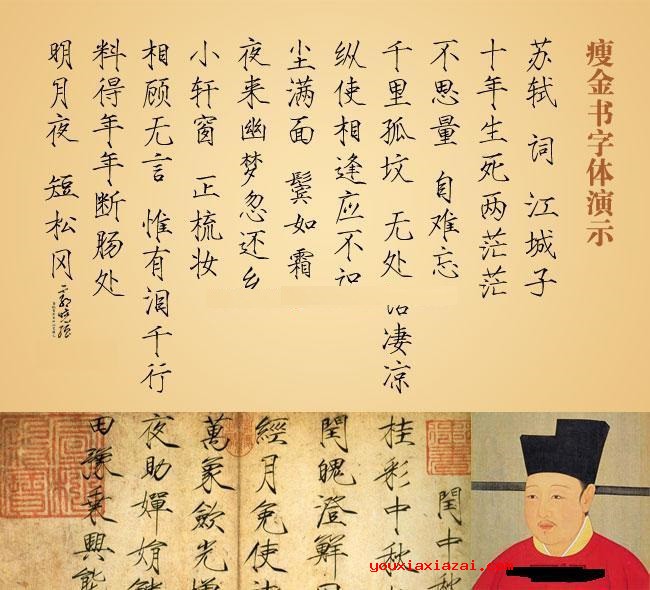 瘦金书字体演示
苏轼 词 江城子
十年生死两茫茫
不思量 自难忘
千里孤坟 无处 凄凉
纵使相逢应不
尘满面 鬓如霜
夜来幽梦忽还乡
小轩窗 正梳妆
相顾无言 惟有泪千行
料得年年断肠处
明月夜 短松冈
閏中秋
桂彩中秋
閏魄澄鮮
經月免使
萬象斂光增
夜助嬋娟
田豫乘興能
youxiaxiazai.com